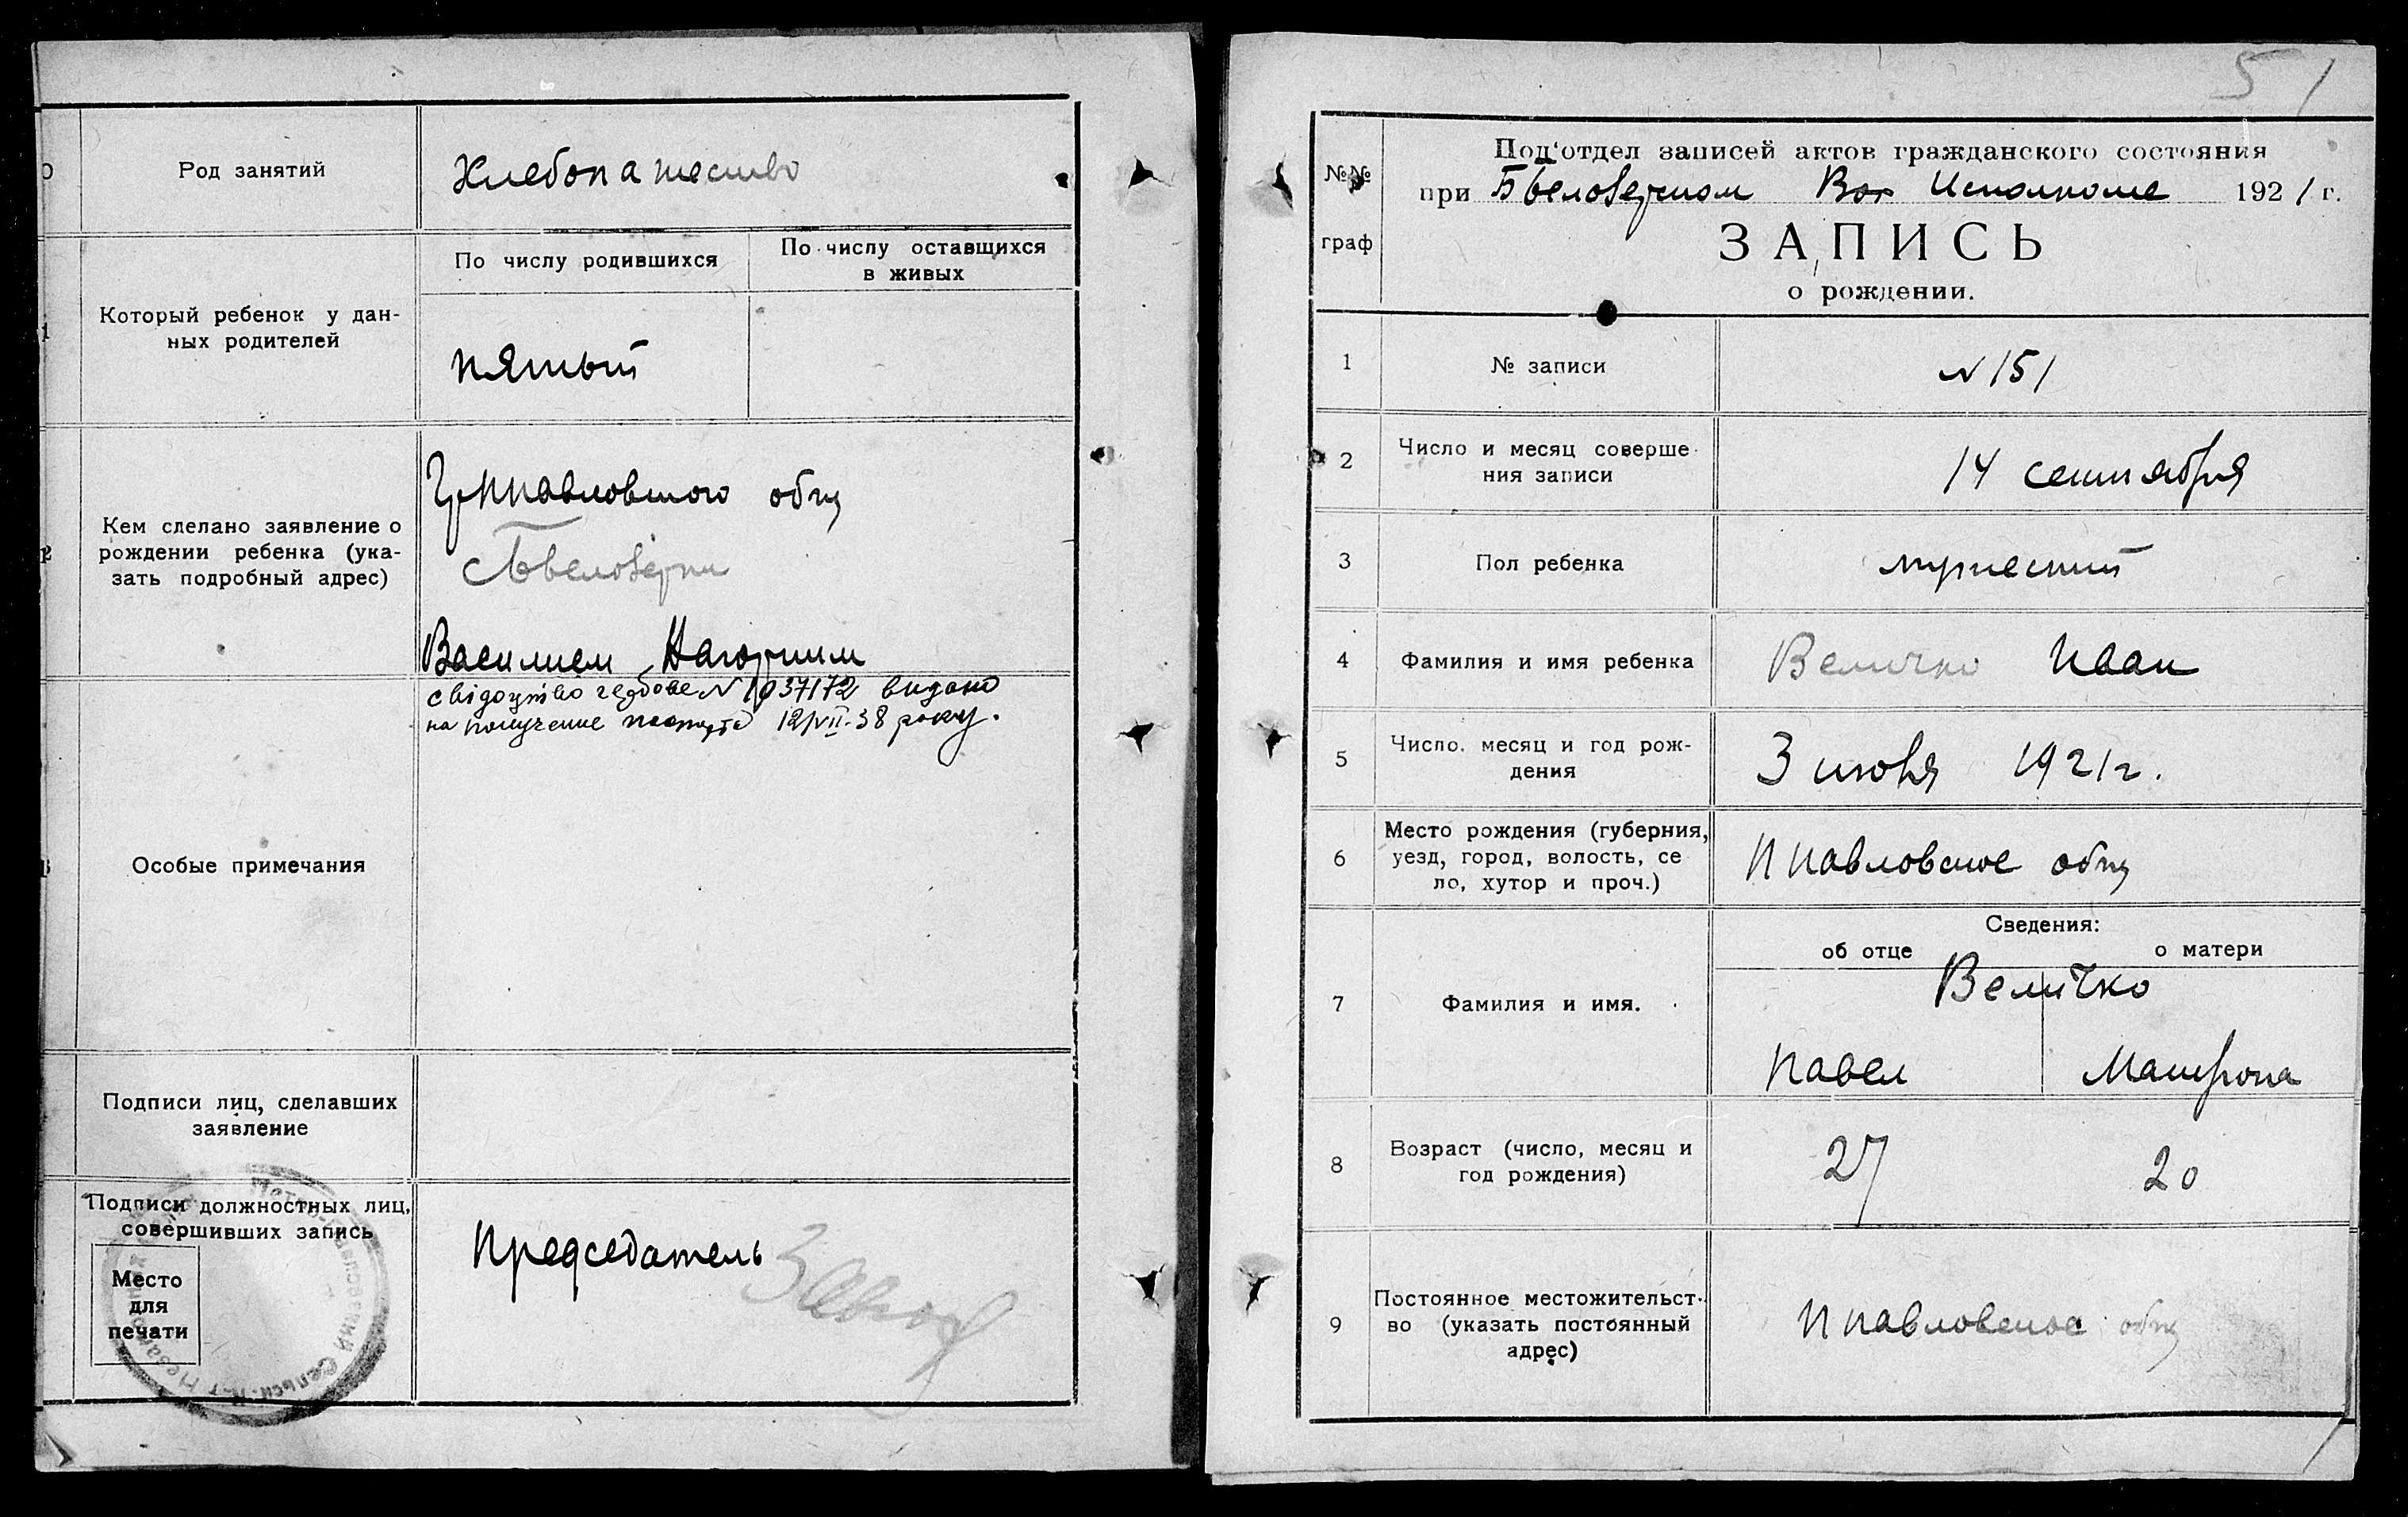 Род занятий
Хлебопашество
Который ребенок у дан-
ных родителей
По числу родившихся
По числу оставщихся
в живых
пятый
Кем сделано заявление о
рождении ребенка (ука-
зать подробный адрес)
общ
Василием
свідоцтво гербове № 1037172 видано
на получение паспорта 12/VII-38 року.
Особые примечания
Подписи лиц, сделавших
заявление
Подписи должностных лиц,
совершивших запись
Председатель
Место
для
печати
51
№№
граф
Под'отдел записей актов гражданского состояния
при Вол Исполкоме 1921 г.
ЗАПИСЬ
о рождении.
1
№ записи
№ 151
2
Число и месяц соверше-
ния записи
14 сентября
3
Пол ребенка
мужеский
4
Фамилия и имя ребенка
Величко Иван
5
Число, месяц и год рож-
дения
3 1921 г.
6
Место рождения (губерния,
уезд, город, волость, се
ло, хутор и проч.)
Ппавловское общ
Сведения:
об отце
о матери
7
Фамилия и имя.
Величко
Павел
Матрона
8
Возраст (число, месяц и
год рождения)
27
20
9
Постоянное местожительст-
во (указать постоянный
адрес)
Ппавловское общ